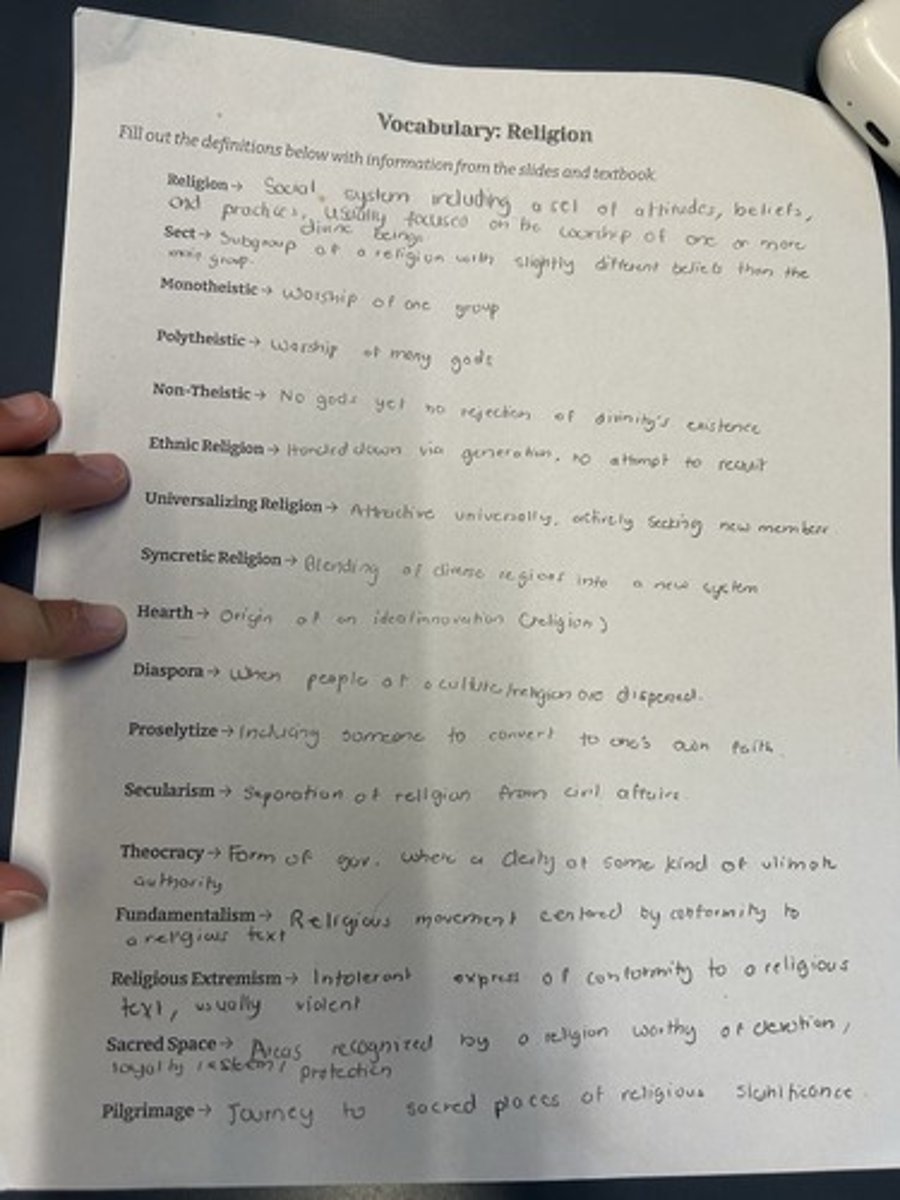 Vocabulary: Religion
Fill out the definitions below with information from the slides and textbook.
Religion → Social system including a set of attitudes, beliefs,
and practices, usually focused on the worship of one or more
divine beings
Sect → Subgroup of a religion with slightly different beliefs than the
group.
Monotheistic → Worship of one group
Polytheistic → Worship of many gods
Non-Theistic → No gods yet no rejection of divinity's existence
Ethnic Religion → Handed down via generation, no attempt to recruit
Universalizing Religion → Attractive universally, actively seeking new members
Syncretic Religion → Blending of diverse regions into a new system
Hearth → Origin of an idea/innovation (religion)
Diaspora → When people of a culture/religion are dispersed.
Proselytize → Inducing someone to convert to one's own faith.
Secularism → Separation of religion from civil affairs.
Theocracy → Form of gov. where a deity of some kind of ultimate
authority
Fundamentalism → Religious movement centered by conformity to
a religious text
Religious Extremism → Intolerant express of conformity to a religious
text, usually violent
Sacred Space → Areas recognized by a religion worthy of devotion,
loyalty, esteem, protection
Pilgrimage → Journey to sacred places of religious significance